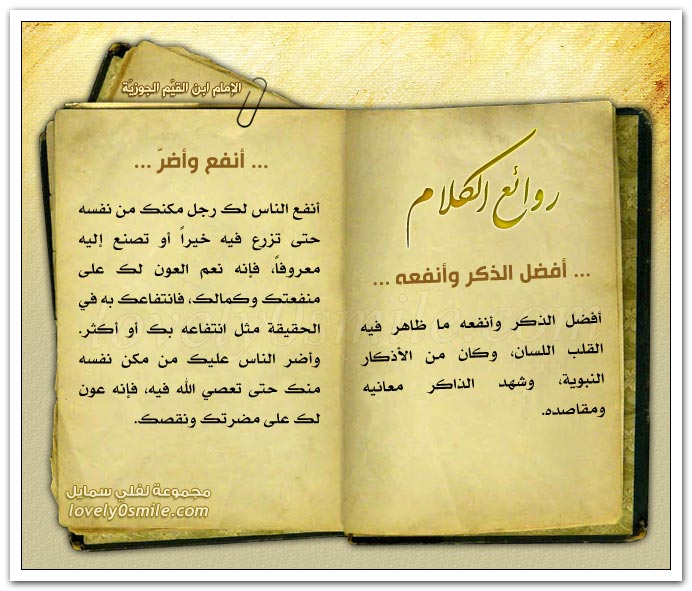 الإمام ابن القيَّم الجوزيَّة
روائع الكلام
... أفضل الذكر وأنفعه ...
أفضل الذكر وأنفعه ما ظاهر فيه
القلب اللسان، وكان من الأذكار
النبوية، وشهد الذاكر معانيه
ومقاصده.
... أنفع وأضرّ ...
أنفع الناس لك رجل مكنك من نفسه
حتى تزرع فيه خيراً أو تصنع إليه
معروفاً، فإنه نعم العون لك على
منفعتك وكمالك، فانتفاعك به في
الحقيقة مثل انتفاعه بك أو أكثر.
وأضر الناس عليك من مكن نفسه
منك حتى تعصي الله فيه، فإنه عون
لك على مضرتك ونقصك.
مجموعة لفلي سمايل
lovely0smile.com
lovely0smile.com